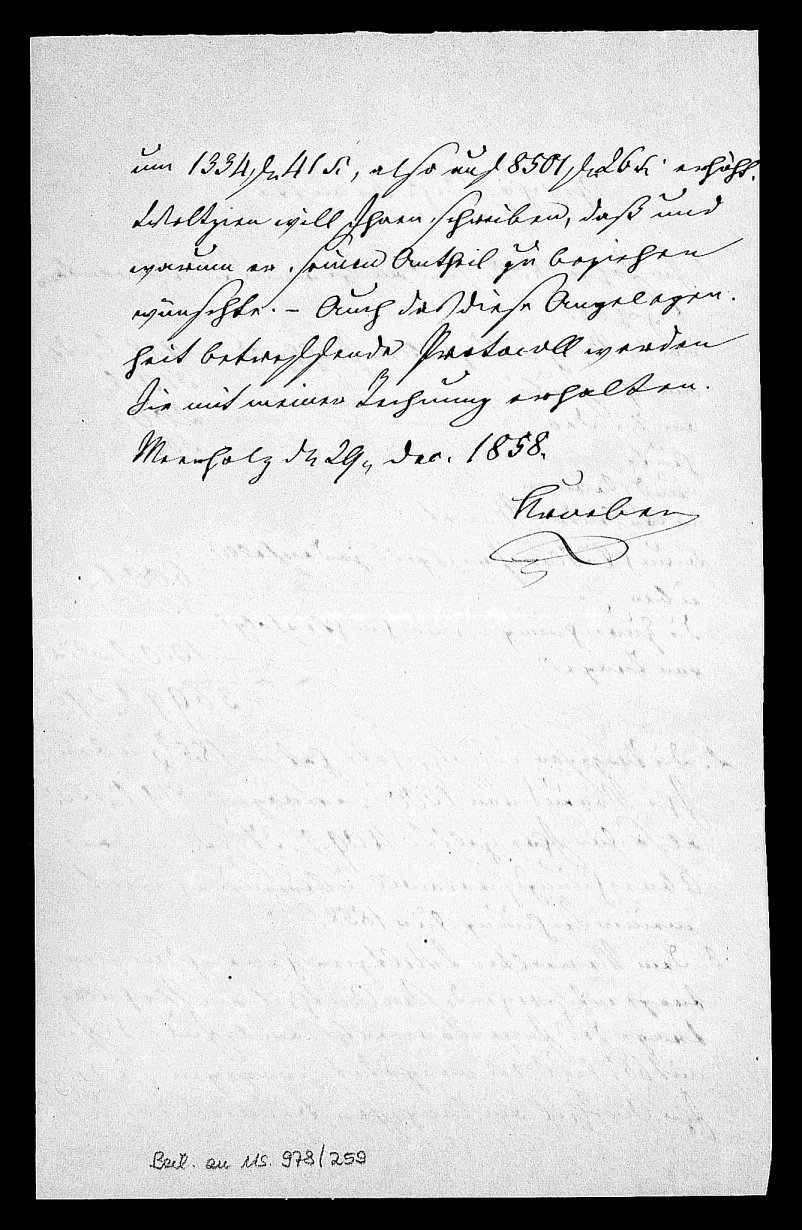 um 1334 fl 41 Kr, also auf 8501 fl 26 Kr. erhöht.
Woltzien will Ihnen schreiben, daß und
warum er seinen Antheil zu beziehen
wünschte. – Auch das diese Angelegen-
heit betreffende Protocoll werden
Sie mit meiner Rechnung erhalten.
Meerholz d. 29. Dec. 1858.
Beil. an MS. 978/259